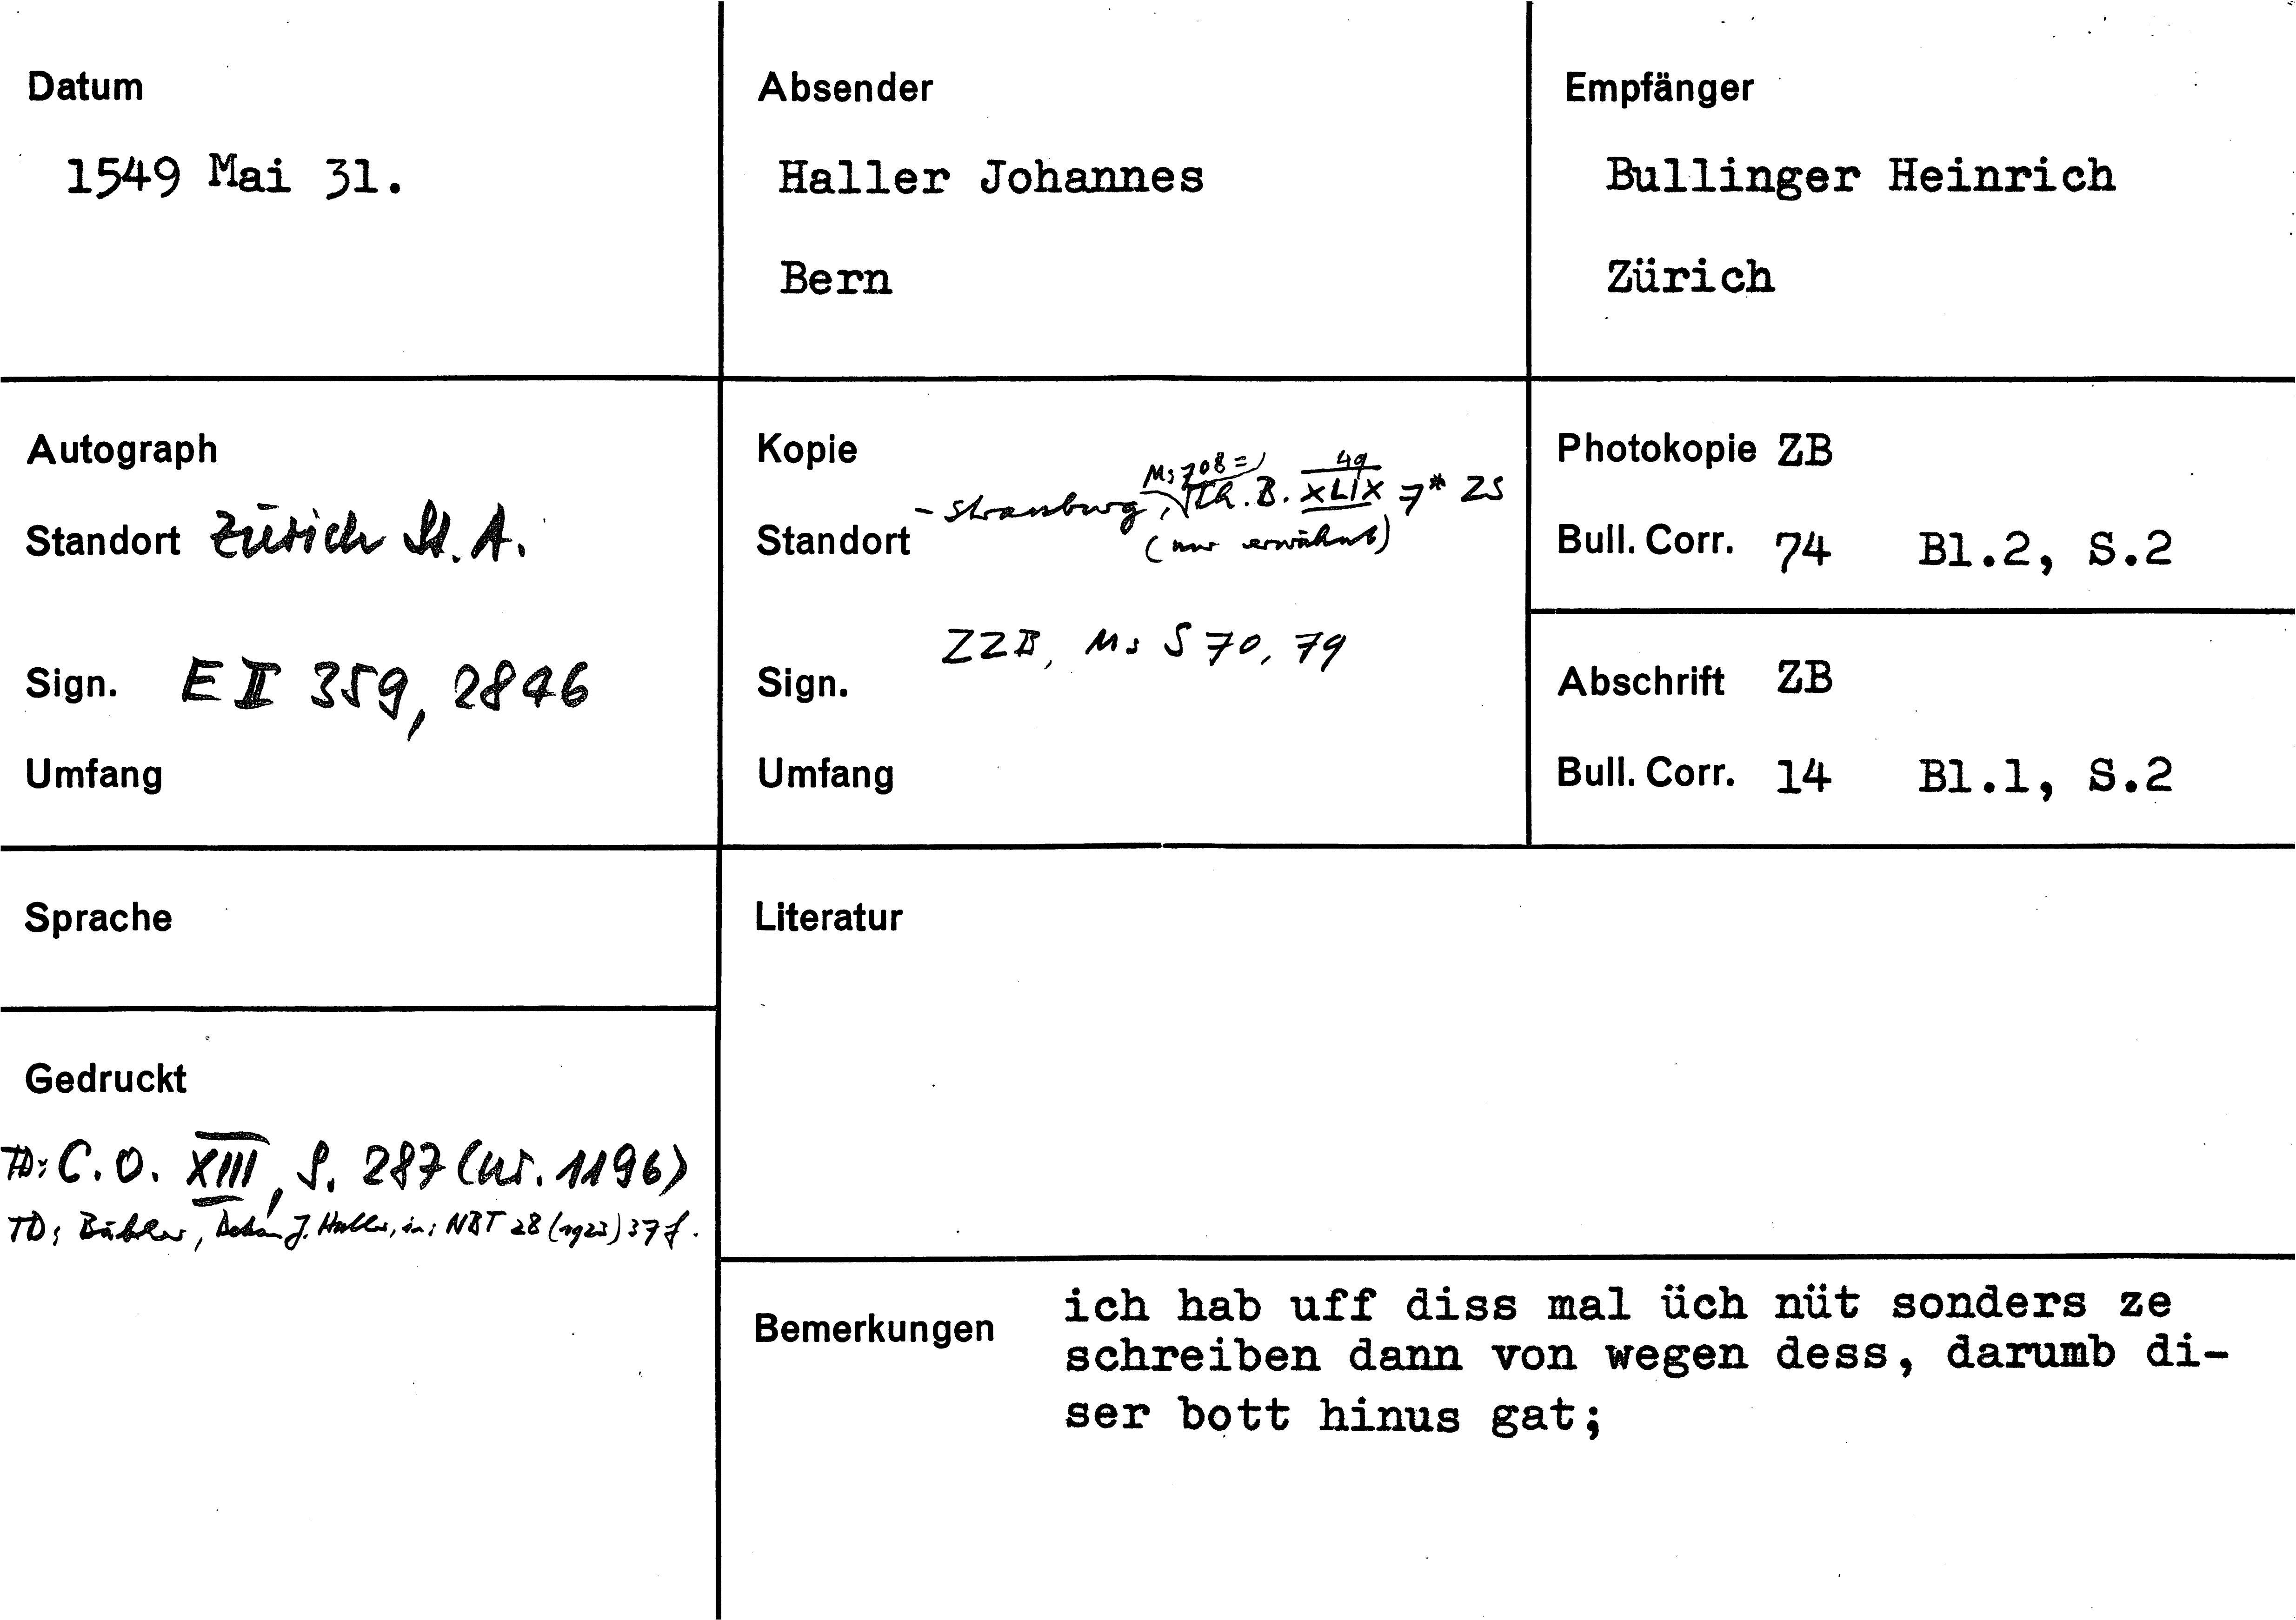 Datum
1549 Mai 31.
Absender
Haller Johannes
Bern
Empfänger
Bullinger Heinrich
Zürich
Autograph
Standort Zürich St. A.
Sign. E II 359, 2846
Umfang
Kopie
Ms 708 = 49
- Strassburg, Th. B. XLIX 7* ZS
Standort (nur erwähnt)
ZZB, Ms S 70, 79
Sign.
Umfang
Photokopie ZB
Bull. Corr. 74 Bl.2, S.2
Abschrift ZB
Bull. Corr. 14 Bl.1, S.2
Sprache
Literatur
Gedruckt
TD: C.O. XIII, S. 287 (Nr. 1196)
TD: Bähler, Dekan J. Haller, in: NBT 28 (1923) 37 f.
Bemerkungen
ich hab uff diss mal üch nüt sonders ze
schreiben dann von wegen dess, darumb di-
ser bott hinus gat;